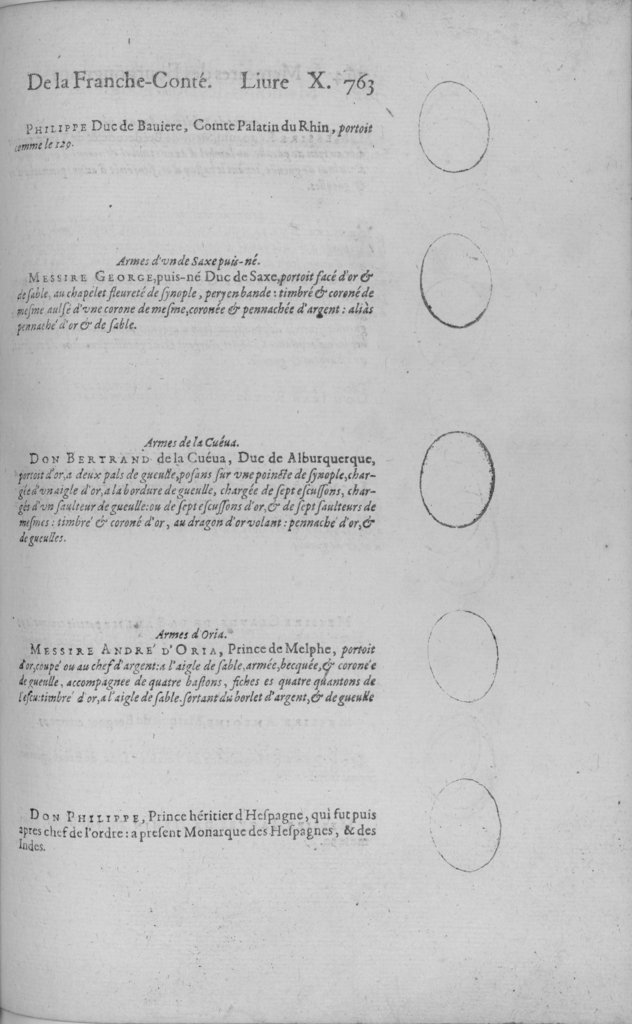 De la Franche-Conté. Liure X. 763
PHILIPPE Duc de Bauiere, Comte Palatin du Rhin, portoit
comme le 129.
Armes d'vn de Saxe puis-né.
MESSIRE GEORGE, puis-né Duc de Saxe, portoit facé d'or &
de sable, au chapelet fleureté de synople, pery en bande: timbré & coroné de
mesme, aussé d'vne corone de mesme, coronée & pennachée d'argent: aliàs
pennaché d'or & de sable.
Armes de la Cuéua.
DON BERTRAND de la Cuéua, Duc de Alburquerque,
portoit d'or, a deux pals de gueulle, posans sur vne poincte de synople, char-
gée d'vn aigle d'or, a la bordure de gueulle, chargée de sept escussons, char-
gés d'vn saulteur de gueulle: ou de sept escussons d'or, & de sept saulteurs de
mesmes: timbré & coroné d'or, au dragon d'or volant: pennaché d'or, &
de gueulles.
Armes d'Oria.
MESSIRE ANDRE' D'ORIA, Prince de Melphe, portoit
d'or, coupé ou au chef d'argent: a l'aigle de sable, armée, becquée, & coronée
de gueulle, accompagnee de quatre bastons, fiches es quatre quantons de
l'escu: timbré d'or, a l'aigle de sable sortant du borlet d'argent, & de gueulle
DON PHILIPPE, Prince héritier d'Hespagne, qui fut puis
apres chef de l'ordre: a present Monarque des Hespagnes, & des
Indes.